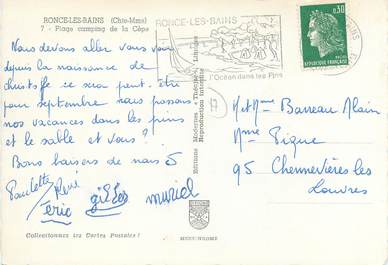 RONCE-LES-BAINS (Chte-Mme)
7 - Plage camping de la Cèpe
Nous devons aller vous voir
depuis la naissance de
christofe ce sera peut être
pour septembre nous passons
nos vacances dans les pins
et le sable et vous?
Bons baisers de nous 5
Paulette René
Éric gilles muriel
Collectionnez les Cartes Postales !
Editions Modernes Théojac, Limoges
Reproduction interdite
RONCE-LES-BAINS
l'Océan dans les Pins
0,30
REPUBLIQUE FRANÇAISE
17
M et Mme Barreau Alain
Mme Pique
95 Chennevières les
Louvres